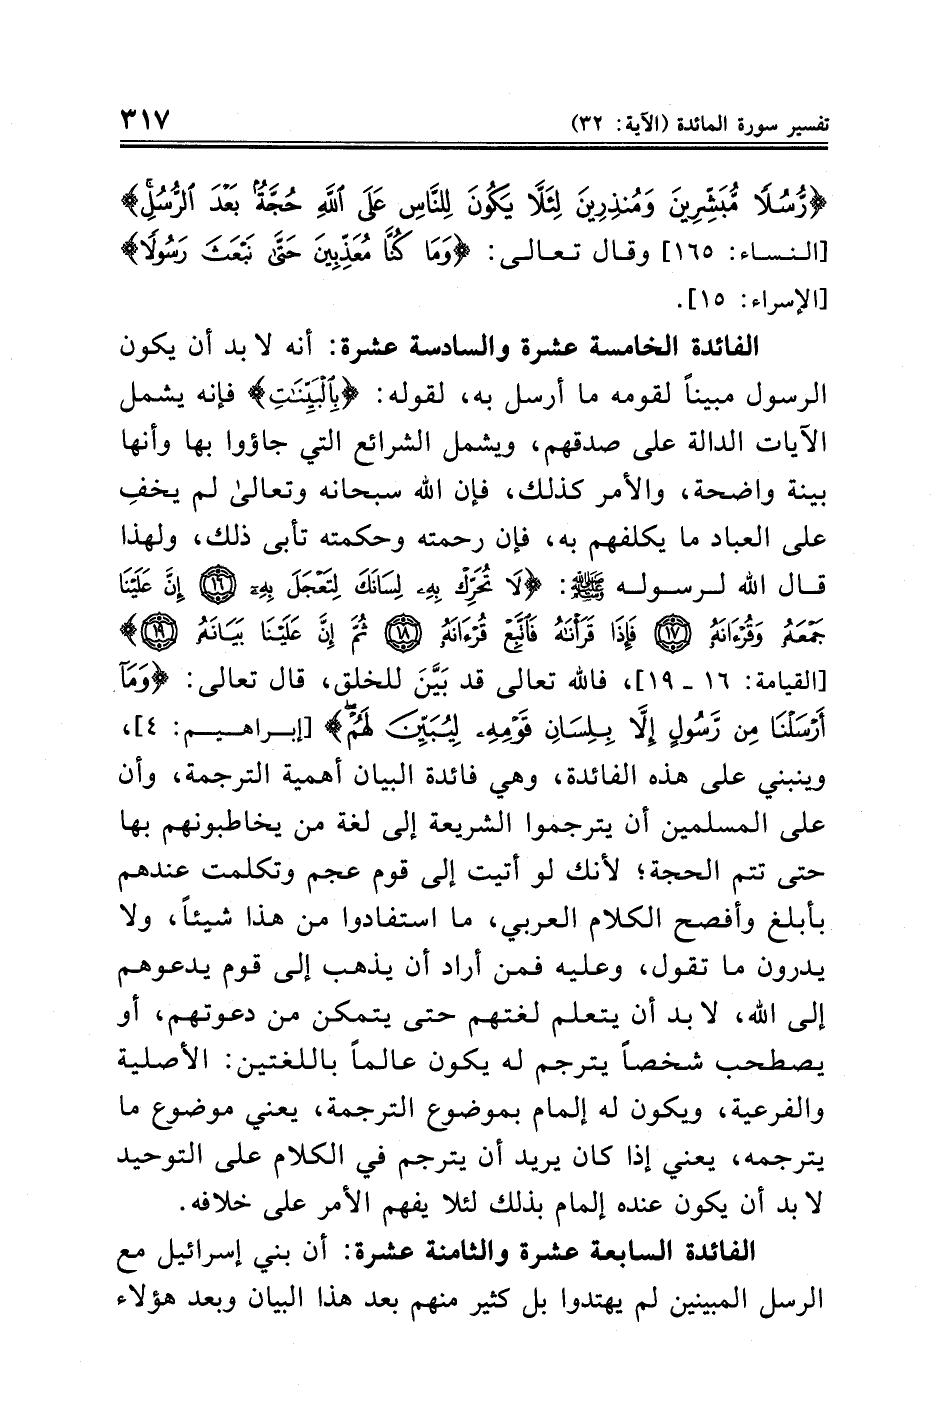 تفسير سورة المائدة (الآية: ٣٢) ٣١٧
﴿رُّسُلًا مُّبَشِّرِينَ وَمُنذِرِينَ لِئَلَّا يَكُونَ لِلنَّاسِ عَلَى ٱللَّهِ حُجَّةٌۢ بَعْدَ ٱلرُّسُلِۚ﴾
[النساء: ١٦٥] وقال تعالى: ﴿وَمَا كُنَّا مُعَذِّبِينَ حَتَّىٰ نَبْعَثَ رَسُولًا﴾
[الإسراء: ١٥].
الفائدة الخامسة عشرة والسادسة عشرة: أنه لا بد أن يكون
الرسول مبيناً لقومه ما أرسل به، لقوله: ﴿بِٱلْبَيِّنَٰتِ﴾ فإنه يشمل
الآيات الدالة على صدقهم، ويشمل الشرائع التي جاؤوا بها وأنها
بينة واضحة، والأمر كذلك، فإن الله سبحانه وتعالىٰ لم يخفِ
على العباد ما يكلفهم به، فإن رحمته وحكمته تأبى ذلك، ولهذا
قال الله لرسوله ﷺ: ﴿لَا تُحَرِّكْ بِهِۦ لِسَانَكَ لِتَعْجَلَ بِهِۦٓ ١٦ إِنَّ عَلَيْنَا
جَمْعَهُۥ وَقُرْءَانَهُۥ ١٧ فَإِذَا قَرَأْنَٰهُ فَٱتَّبِعْ قُرْءَانَهُۥ ١٨ ثُمَّ إِنَّ عَلَيْنَا بَيَانَهُۥ ١٩﴾
[القيامة: ١٦ - ١٩]، فالله تعالى قد بَيَّنَ للخلق، قال تعالى: ﴿وَمَآ
أَرْسَلْنَا مِن رَّسُولٍ إِلَّا بِلِسَانِ قَوْمِهِۦ لِيُبَيِّنَ لَهُمْۖ﴾ [إبراهيم: ٤]،
وينبني على هذه الفائدة، وهي فائدة البيان أهمية الترجمة، وأن
على المسلمين أن يترجموا الشريعة إلى لغة من يخاطبونهم بها
حتى تتم الحجة؛ لأنك لو أتيت إلى قوم عجم وتكلمت عندهم
بأبلغ وأفصح الكلام العربي، ما استفادوا من هذا شيئاً، ولا
يدرون ما تقول، وعليه فمن أراد أن يذهب إلى قوم يدعوهم
إلى الله، لا بد أن يتعلم لغتهم حتى يتمكن من دعوتهم، أو
يصطحب شخصاً يترجم له يكون عالماً باللغتين: الأصلية
والفرعية، ويكون له إلمام بموضوع الترجمة، يعني موضوع ما
يترجمه، يعني إذا كان يريد أن يترجم في الكلام على التوحيد
لا بد أن يكون عنده إلمام بذلك لئلا يفهم الأمر على خلافه.
الفائدة السابعة عشرة والثامنة عشرة: أن بني إسرائيل مع
الرسل المبينين لم يهتدوا بل كثير منهم بعد هذا البيان وبعد هؤلاء